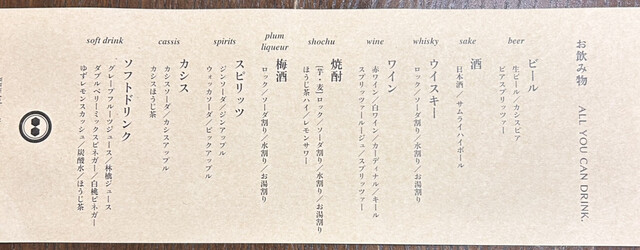 お飲み物 ALL YOU CAN DRINK.
beer
ビール
生ビール／カシスビア／
ビアスプリッツァー
sake
酒
日本酒／サムライハイボール
whisky
ウイスキー
ロック／ソーダ割り／水割り／お湯割り
wine
ワイン
赤ワイン／白ワイン／カーディナル／キール
スプリッツァールージュ／スプリッツァー
shochu
焼酎
(芋・麦)ロック／ソーダ割り／水割り／お湯割り
ほうじ茶ハイ／レモンサワー
plum
liqueur
梅酒
ロック／ソーダ割り／水割り／お湯割り
spirits
スピリッツ
ジンソーダ／ジンアップル
ウォッカソーダ／ビックアップル
cassis
カシス
カシスソーダ／カシスアップル
カシスほうじ茶
soft drink
ソフトドリンク
グレープフルーツジュース／林檎ジュース
ダブルベリーミックスビネガー／白桃ビネガー
ゆずレモンスカッシュ／炭酸水／ほうじ茶